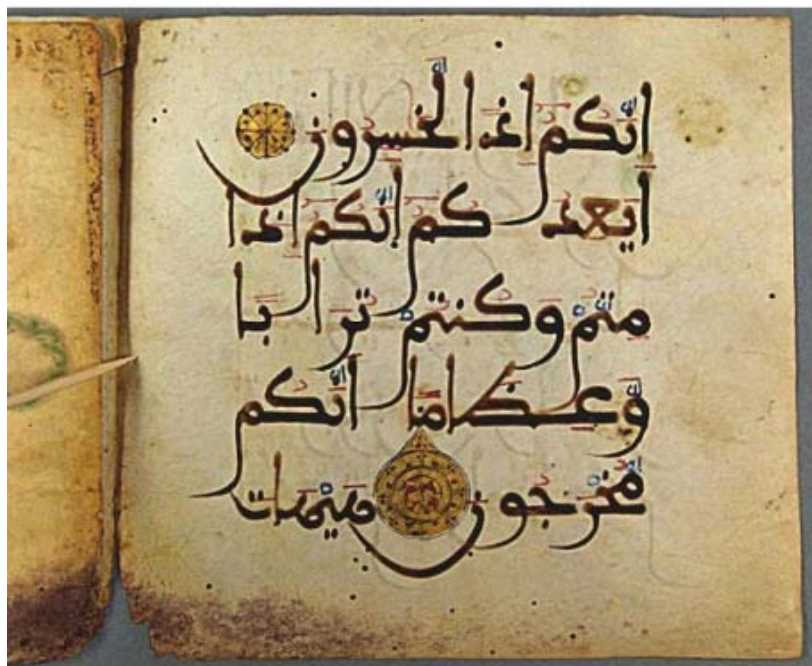 إنكم إذا لخسرون
أيعدكم أنكم إذا
متم وكنتم ترابا
وعظاما أنكم
مخرجون هيهات